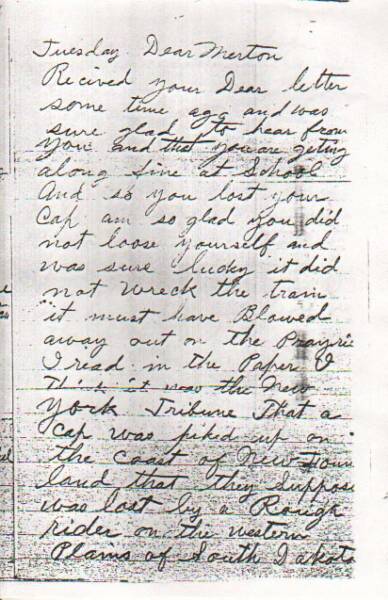 Tuesday Dear Merton
Recived your Dear letter
some time ago and was
sure glad to hear from
you and that you are geting
along fine at School
And so you lost your
Cap am so glad you did
not loose yourself and
was sure lucky it did
not wreck the train
it must have Blowed
away out on the Prayrie
I read in the Paper I
Think it was the New
York Tribune That a
Cap was piked up on
the coast of New Foun
land that they Suppose
was lost by a Rough
rider on the western
Plains of South Dakota